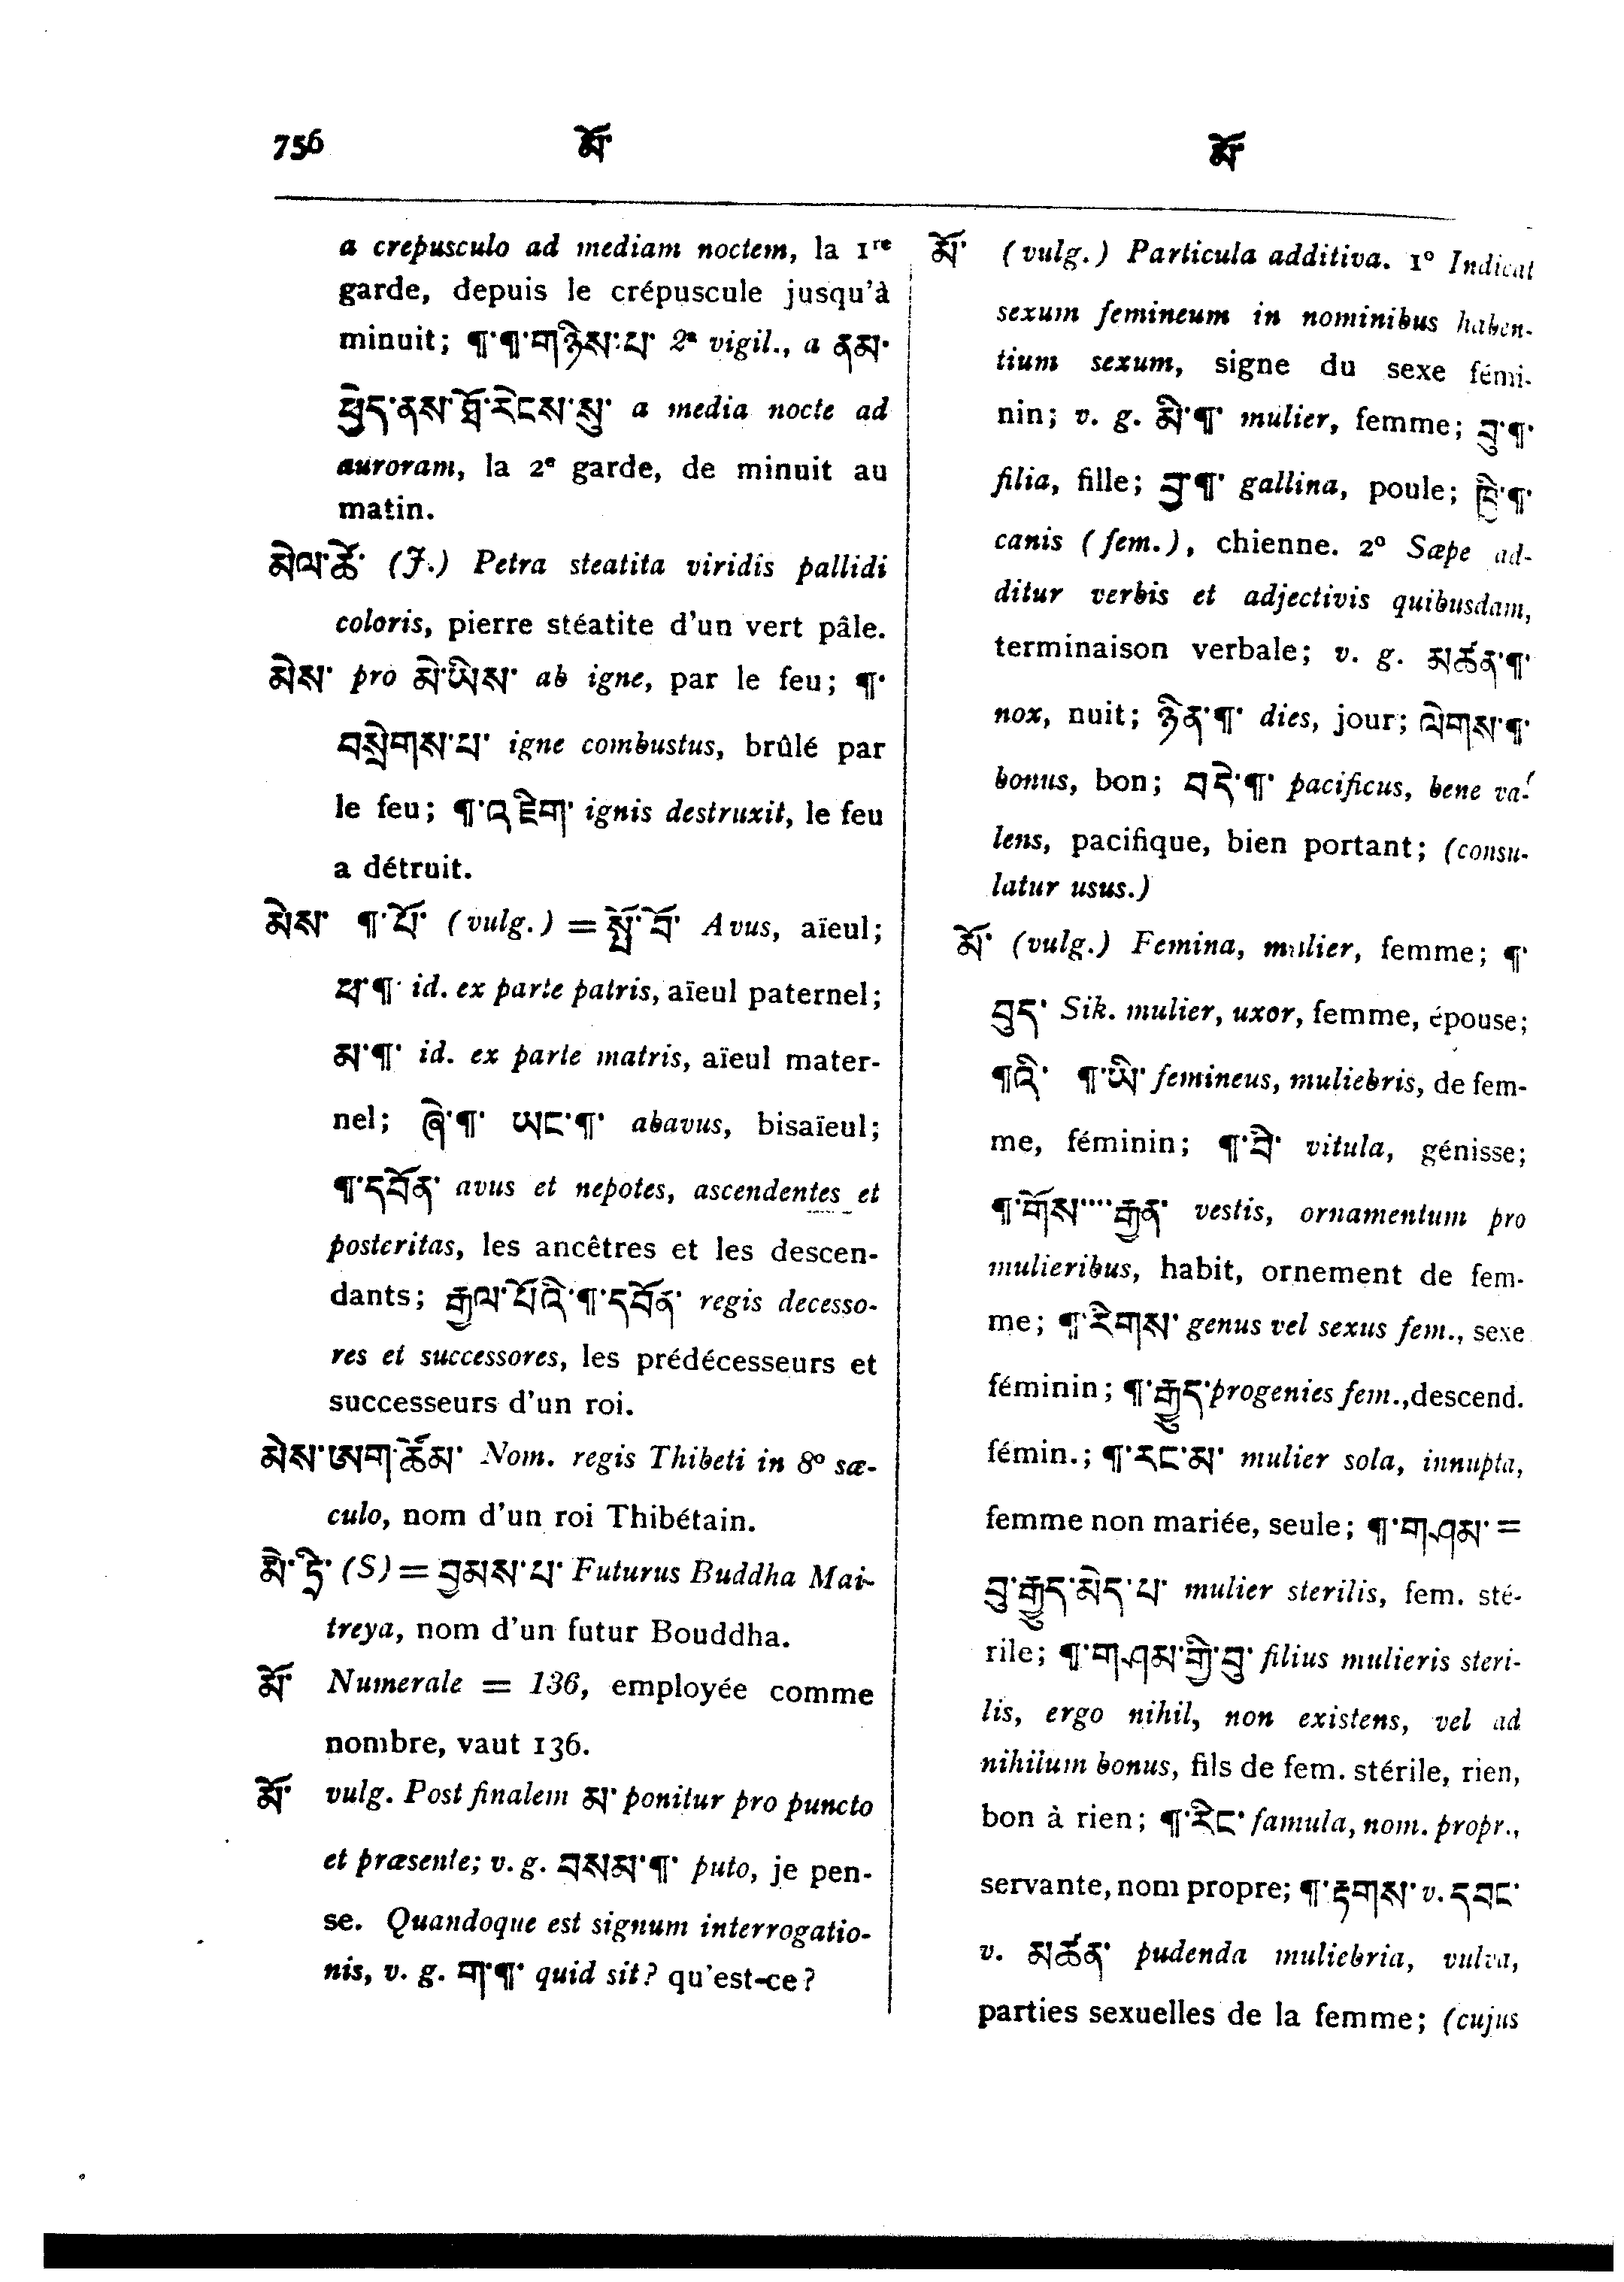 756 མོ་ མོ་
a crepusculo ad mediam noctem, la 1re
garde, depuis le crépuscule jusqu'à
minuit; ¶་¶་གཉིས་པ་ 2a vigil., a ནམ་
ཕྱེད་ནས་ཐོ་རེངས་སུ་ a media nocte ad
auroram, la 2e garde, de minuit au
matin.
མེལ་ཚེ་ (J.) Petra steatita viridis pallidi
coloris, pierre stéatite d'un vert pâle.
མེས་ pro མེ་ཡིས་ ab igne, par le feu; ¶་
བསྲེགས་པ་ igne combustus, brûlé par
le feu; ¶་འཇིག་ ignis destruxit, le feu
a détruit.
མེས་ ¶་པོ་ (vulg.) = སྤོ་བོ་ Avus, aïeul;
ཕ་¶་ id. ex parte patris, aïeul paternel;
མ་¶་ id. ex parte matris, aïeul mater-
nel; ཞེ་¶་ ཡང་¶་ abavus, bisaïeul;
¶་དབོན་ avus et nepotes, ascendentes et
posteritas, les ancêtres et les descen-
dants; རྒྱལ་པོའི་¶་དབོན་ regis decesso-
res et successores, les prédécesseurs et
successeurs d'un roi.
མེས་ཨག་ཚོམ་ Nom. regis Thibeti in 8o sæ-
culo, nom d'un roi Thibétain.
མེ་ཏྲི་ (S) = བྱམས་པ་ Futurus Buddha Mai-
treya, nom d'un futur Bouddha.
མོ་ Numerale = 136, employée comme
nombre, vaut 136.
མོ་ vulg. Post finalem མ་ ponitur pro puncto
et præsente; v. g. བསམ་¶་ puto, je pen-
se. Quandoque est signum interrogatio-
nis, v. g. ག་¶་ quid sit? qu'est-ce?
མོ་ (vulg.) Particula additiva. 1o Indicat
sexum femineum in nominibus haben-
tium sexum, signe du sexe fémi-
nin; v. g. མི་¶་ mulier, femme; བུ་¶་
filia, fille; བྱ་¶་ gallina, poule; ཁྱི་¶་
canis (fem.), chienne. 2o Sæpe ad-
ditur verbis et adjectivis quibusdam,
terminaison verbale; v. g. མཚན་¶་
nox, nuit; ཉིན་¶་ dies, jour; ལེགས་¶་
bonus, bon; བདེ་¶་ pacificus, bene va-
lens, pacifique, bien portant; (consu-
latur usus.)
མོ་ (vulg.) Femina, mulier, femme; ¶་
བུད་ Sik. mulier, uxor, femme, épouse;
¶འི་ ¶་ཡི་ femineus, muliebris, de fem-
me, féminin; ¶་བེ་ vitula, génisse;
¶་གོས་····རྒྱན་ vestis, ornamentum pro
mulieribus, habit, ornement de fem-
me; ¶་རིགས་ genus vel sexus fem., sexe
féminin; ¶་རྒྱུད་ progenies fem., descend.
fémin.; ¶་རང་མ་ mulier sola, innupta,
femme non mariée, seule; ¶་གཤམ་ =
བུ་རྒྱུད་མེད་པ་ mulier sterilis, fem. sté-
rile; ¶་གཤམ་གྱི་བུ་ filius mulieris steri-
lis, ergo nihil, non existens, vel ad
nihilum bonus, fils de fem. stérile, rien,
bon à rien; ¶་རིང་ famula, nom. propr.,
servante, nom propre; ¶་རྟགས་ v. དབང་
v. མཚན་ pudenda muliebria, vulva,
parties sexuelles de la femme; (cujus